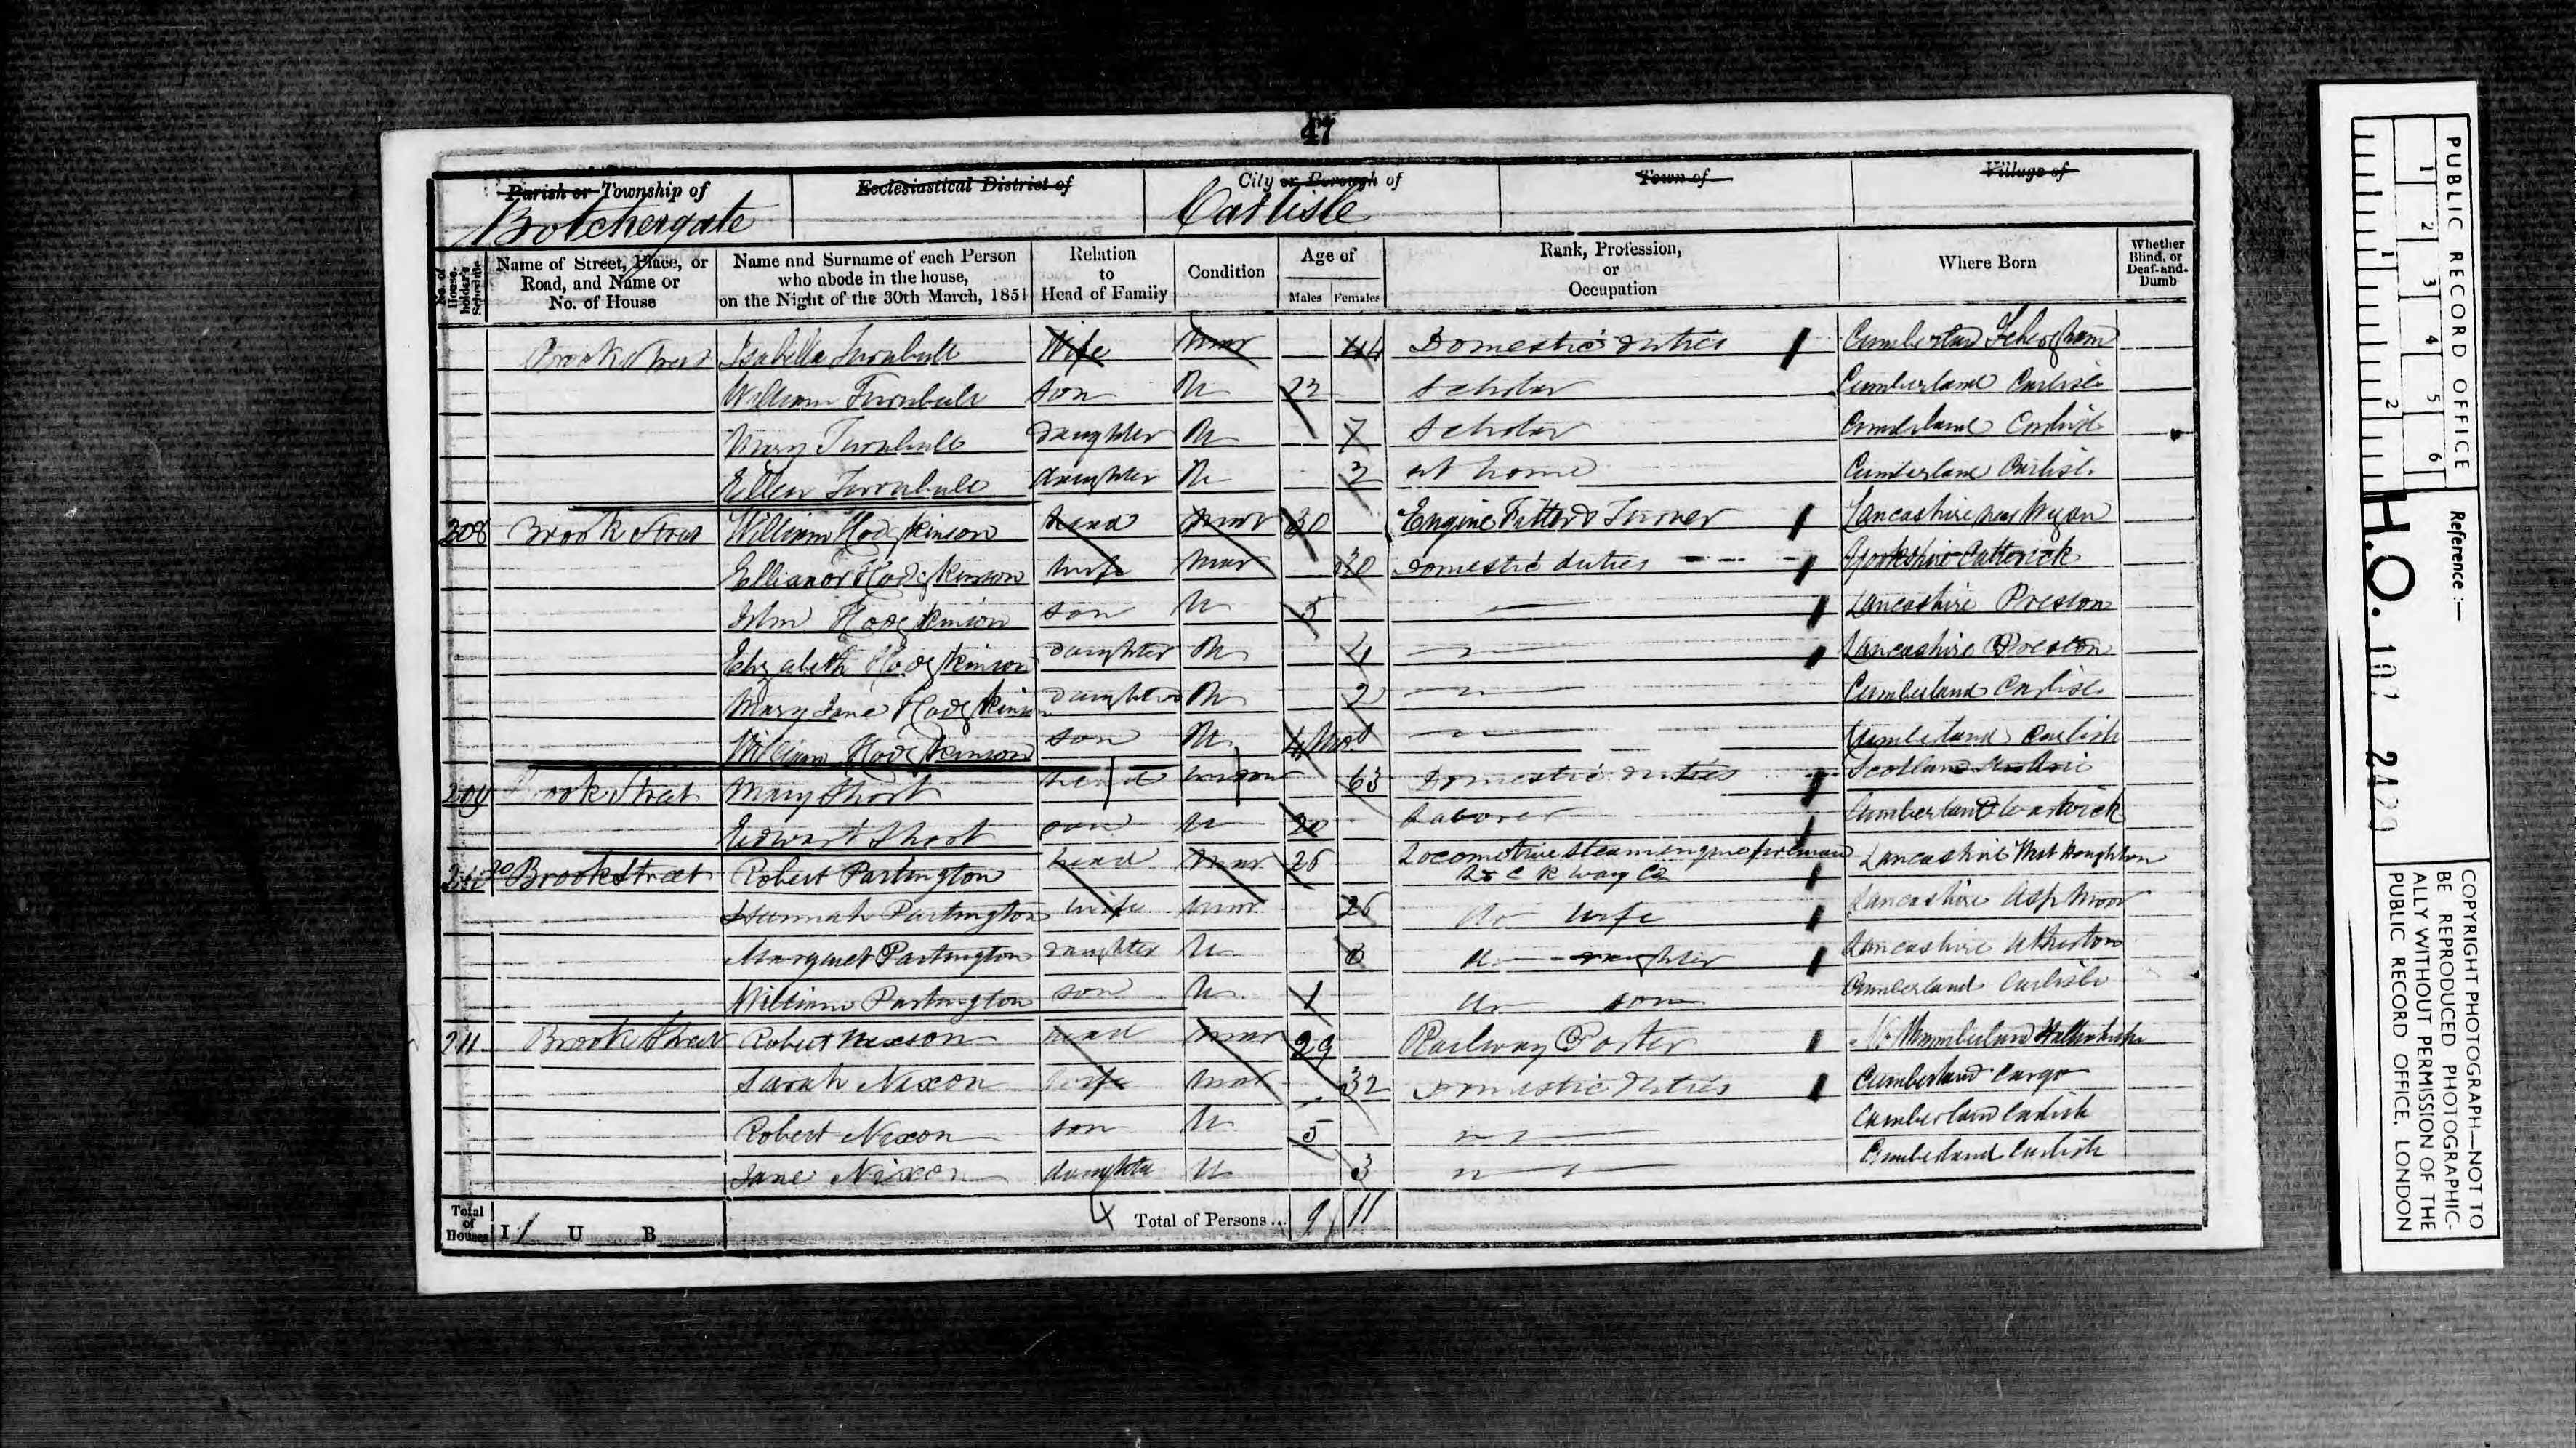 47
Parish or Township of Ecclesiastical District of City or Borough of Town of Village of
Botchergate Carlisle
No. of House-holder's Schedule
Name of Street, Place, or Road, and Name or No. of House
Name and Surname of each Person who abode in the house, on the Night of the 30th March, 1851
Relation to Head of Family
Condition
Age of
Males Females
Rank, Profession, or Occupation
Where Born
Whether Blind, or Deaf-and-Dumb
Brook Street Isabella Turnbull Wife Mar 44 Domestic duties Cumberland
William Turnbull son Un scholar Cumberland Carlisle
Mary Turnbull daughter Un 7 scholar Cumberland Carlisle
Ellen Turnbull daughter Un 2 at home Cumberland Carlisle
208 Brook Street William Hodgkinson head mar 30 Engine Fitter & Turner Lancashire near Wigan
Ellianor Hodgkinson wife mar 30 domestic duties Yorkshire Catterick
John Hodgkinson son Un 5 Lancashire Preston
Elizabeth Hodgkinson daughter Un 4 Lancashire Preston
Mary Jane Hodgkinson daughter Un 2 Cumberland Carlisle
William Hodgkinson son Un 4 Mos Cumberland Carlisle
209 Brook Street Mary Short head 63 Domestic duties Scotland
Edward Short son Un 20 Laborer Cumberland
210 Brook Street Robert Partington head mar Locomotive steam engine fireman Lancashire West Houghton
L & C R way Co
Hannah Partington wife mar 26 do wife Lancashire Asp Moor
Margaret Partington daughter Un do daughter Lancashire Atherton
William Partington son Un 1 do son Cumberland Carlisle
211 Brook Street Robert Nixson head mar 29 Railway Porter
Sarah Nixon wife mar 32 domestic duties Cumberland Cargo
Robert Nixon son Un 5 Cumberland Carlisle
Jane Nixon daughter Un 3 Cumberland Carlisle
Total of Houses I 1 U B 4 Total of Persons... 9 11
PUBLIC RECORD OFFICE
1 2 3 4 5 6
1 2
Reference:-
H.O. 107 2429
COPYRIGHT PHOTOGRAPH—NOT TO
BE REPRODUCED PHOTOGRAPHIC-
ALLY WITHOUT PERMISSION OF THE
PUBLIC RECORD OFFICE, LONDON